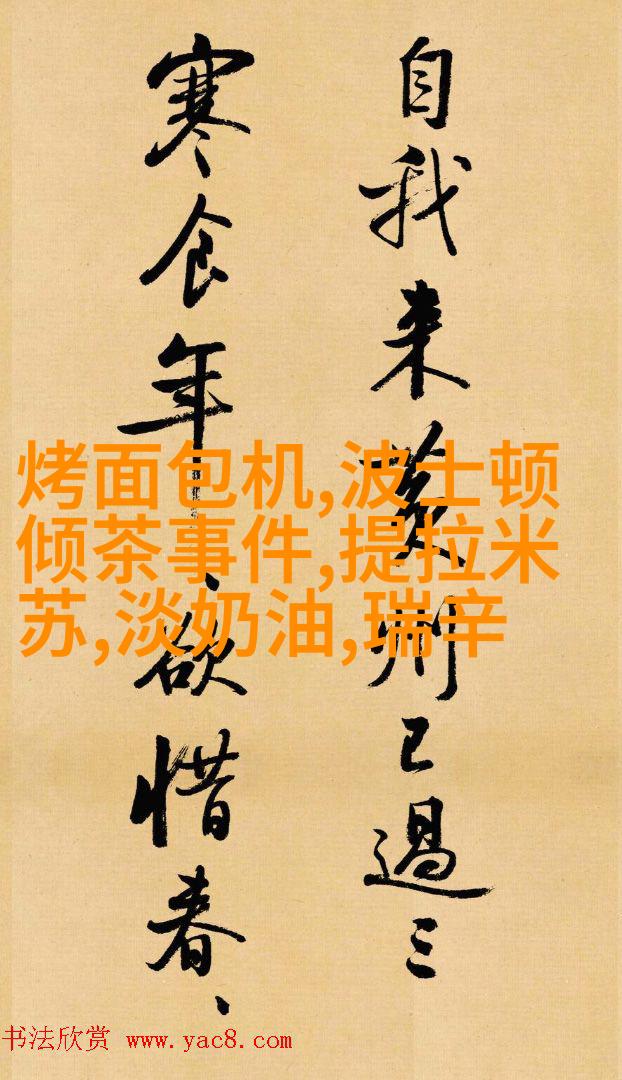 自我来黄州已過三
寒食年、欲惜春、
烤面包机,波士顿
倾茶事件,提拉米
苏,淡奶油,瑞辛
书法欣赏 www.yac8.com